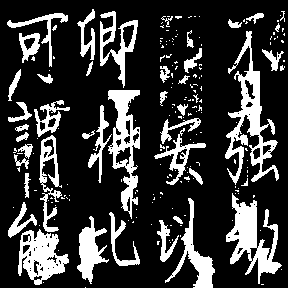 不強
安以
卿相比
可謂能